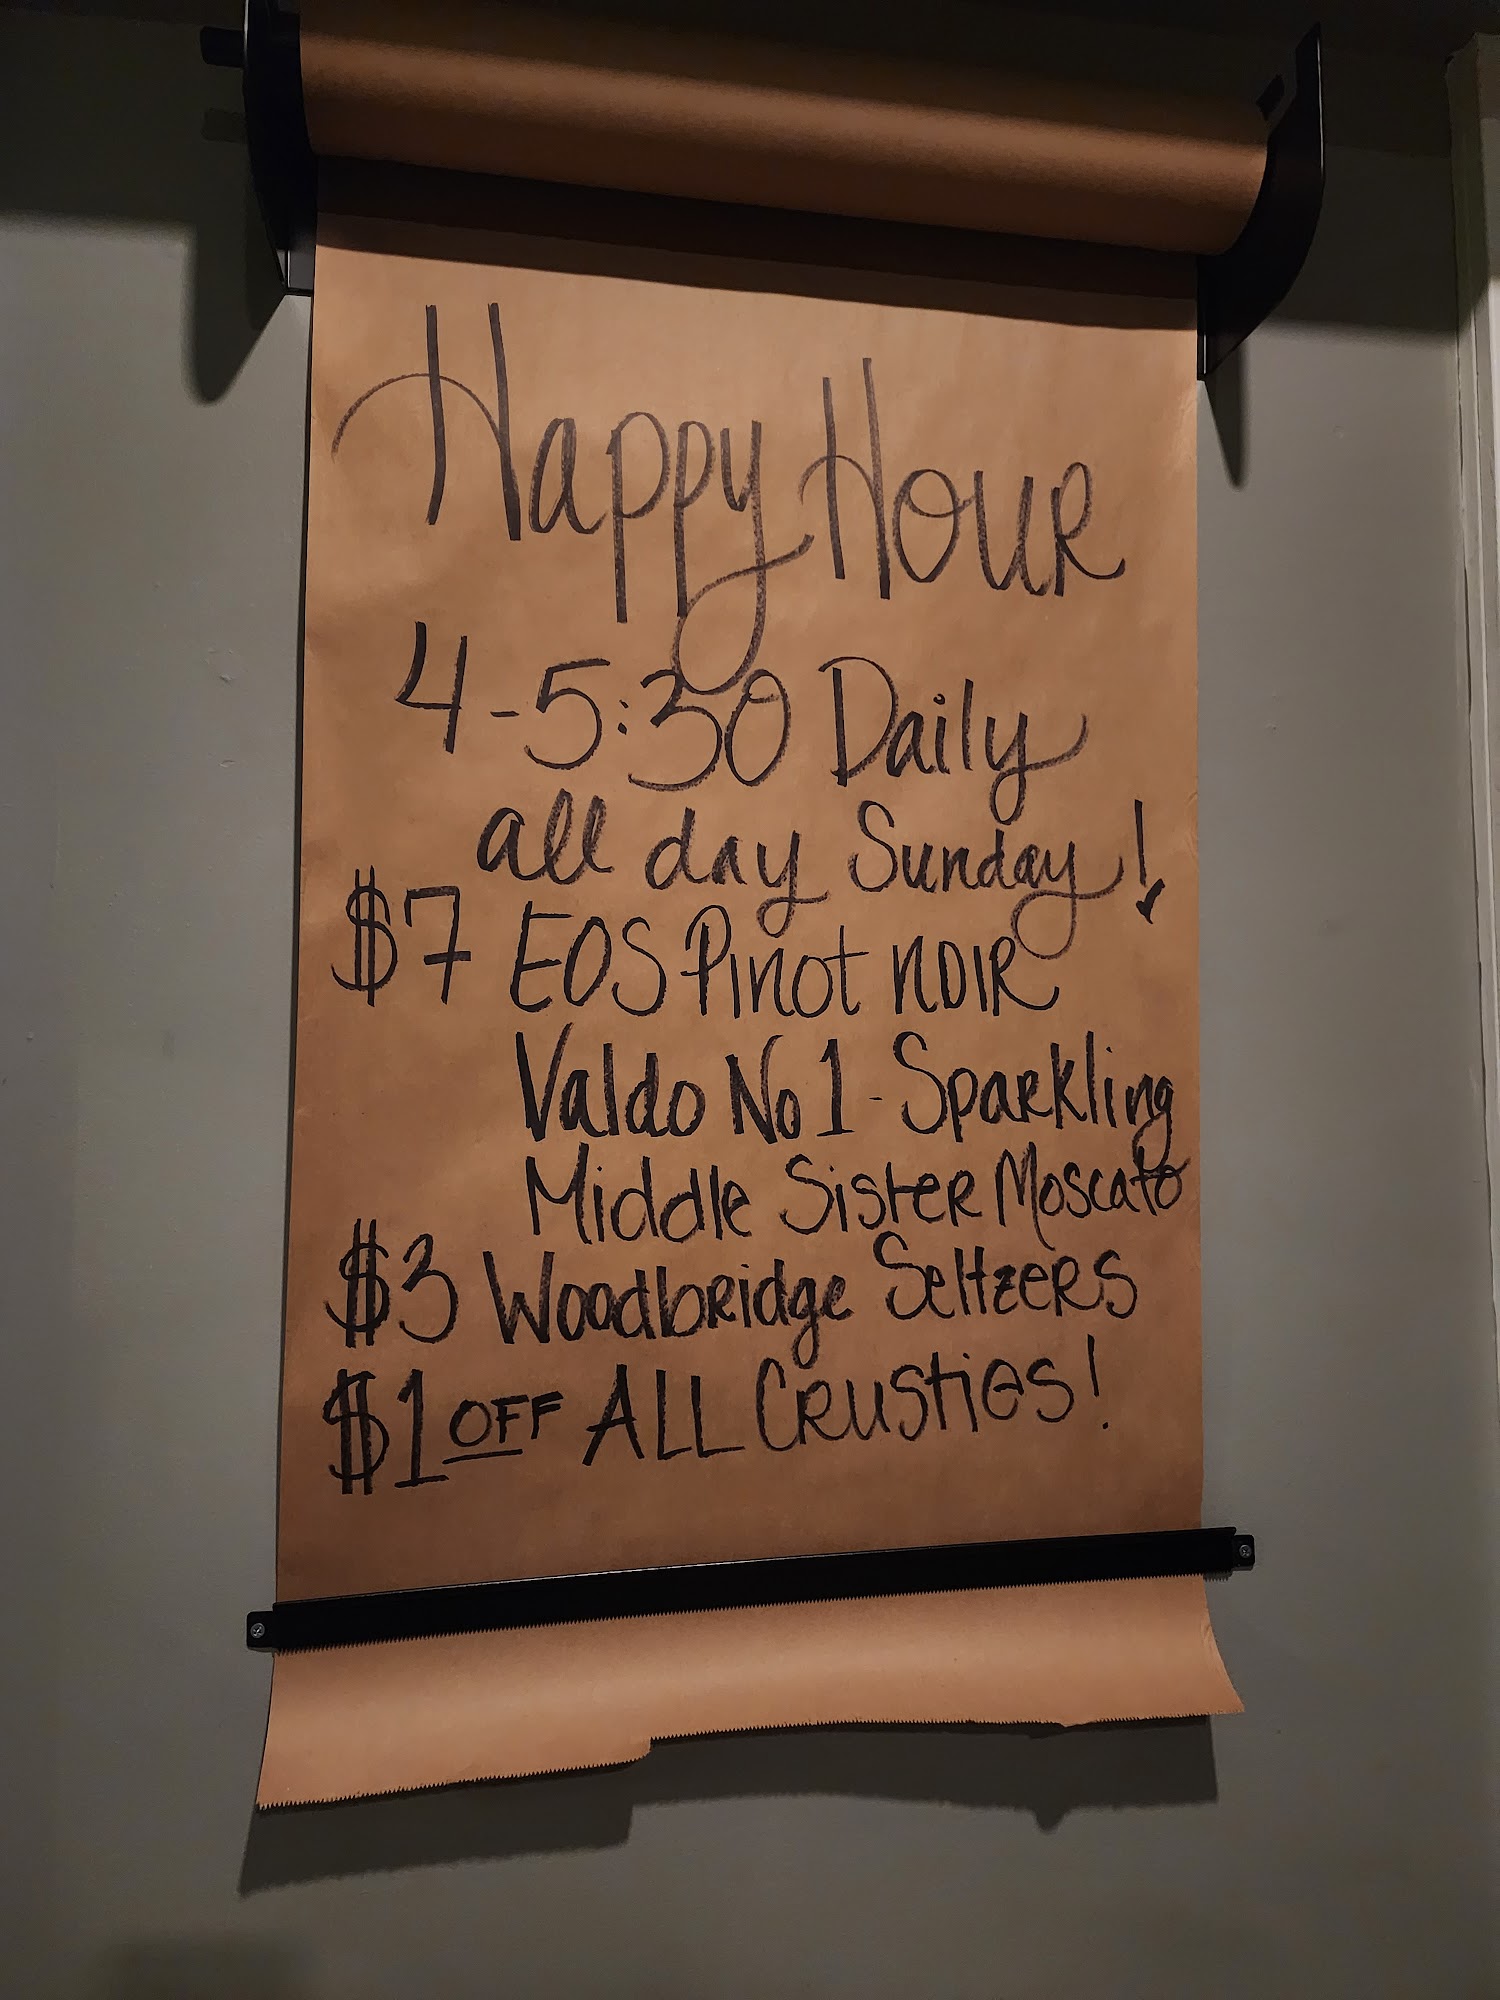 Happy Hour
4-5:30 Daily
all day Sunday!
$7 EOS Pinot NOIR
Valdo No 1 - Sparkling
Middle Sister Moscato
$3 Woodbridge Seltzers
$1 OFF ALL Crusties!